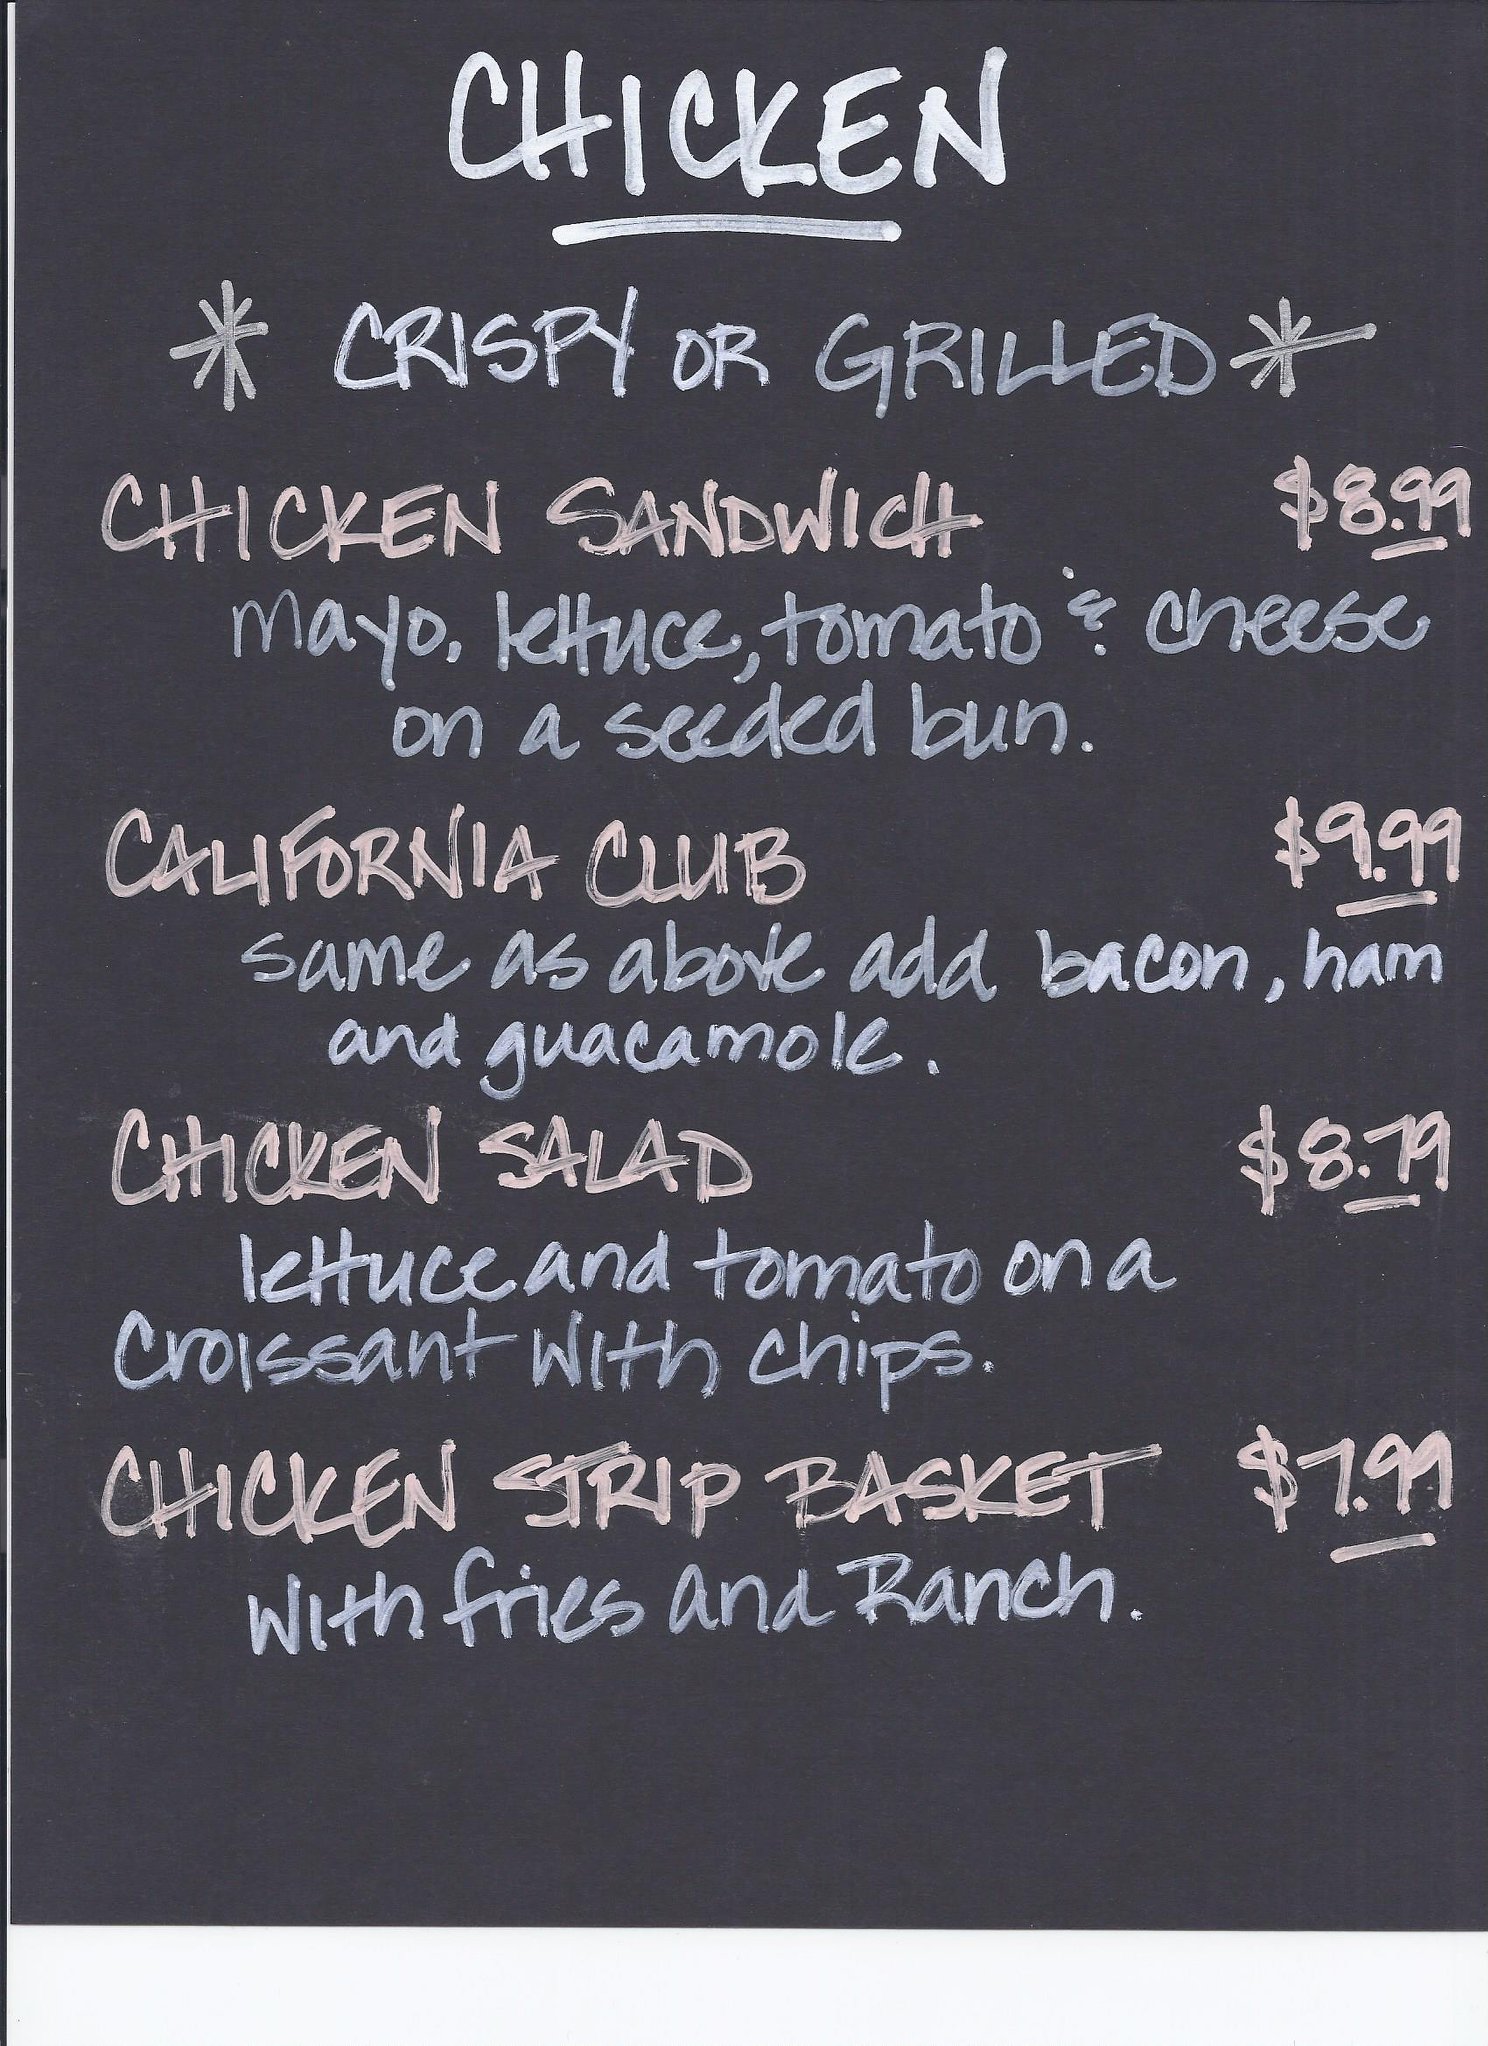 CHICKEN
* CRISPY OR GRILLED *
CHICKEN SANDWICH $8.99
mayo, lettuce, tomato & cheese
on a seeded bun.
CALIFORNIA CLUB $9.99
same as above add bacon, ham
and guacamole.
CHICKEN SALAD $8.79
lettuce and tomato on a
croissant with chips.
CHICKEN STRIP BASKET $7.99
with fries and Ranch.